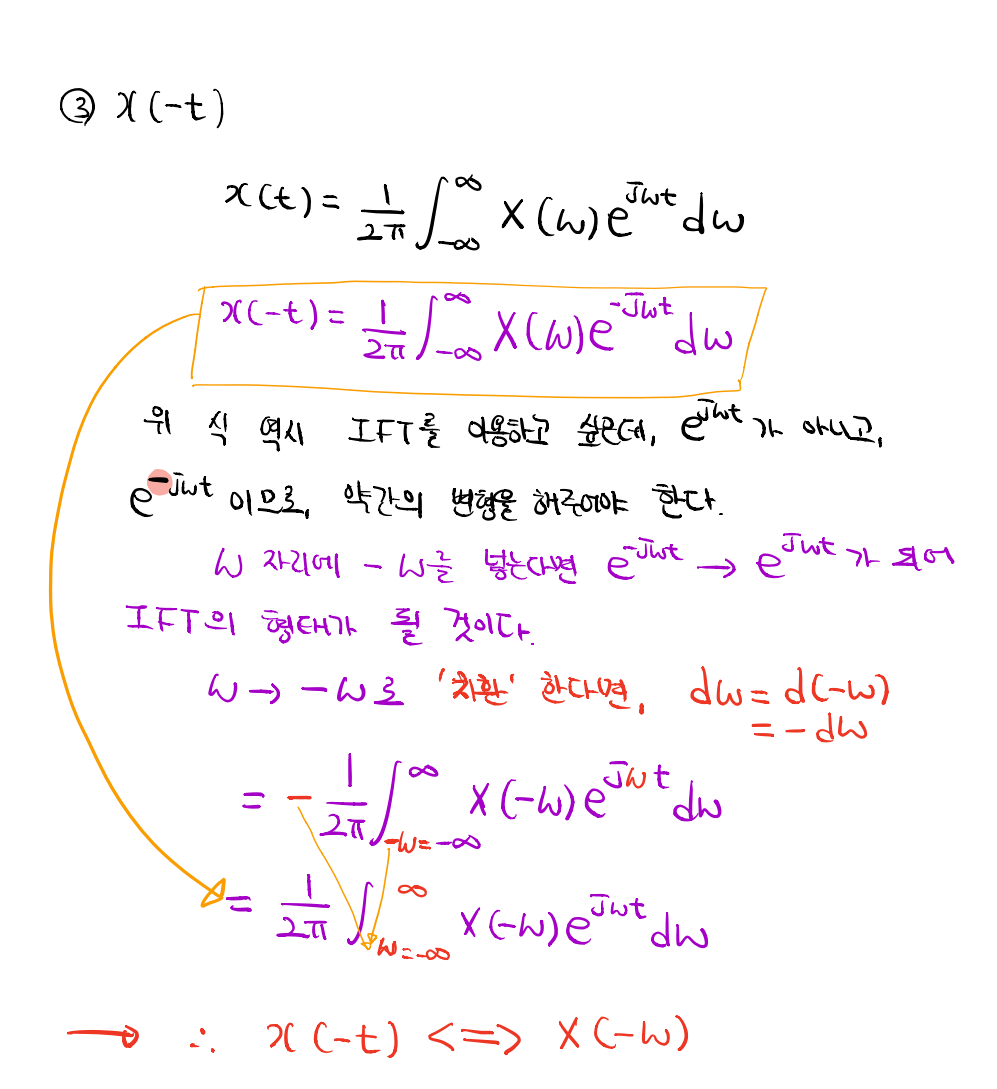 ③ x(-t)
x(t) = 1/2π ∫_{-∞}^{∞} X(ω)e^{jωt} dω
x(-t) = 1/2π ∫_{-∞}^{∞} X(ω)e^{-jωt} dω
위 식 역시 IFT를 이용하고 싶은데, e^{jωt}가 아니고,
e^{-jωt} 이므로, 약간의 변형을 해주어야 한다.
ω 자리에 -ω를 넣는다면 e^{-jωt} → e^{jωt}가 되어
IFT의 형태가 될 것이다.
ω → -ω로 '치환' 한다면, dω = d(-ω)
= -dω
= - 1/2π ∫_{-ω=-∞}^{∞} X(-ω)e^{jωt} dω
= 1/2π ∫_{ω=-∞}^{∞} X(-ω)e^{jωt} dω
→ ∴ x(-t) <=> X(-ω)